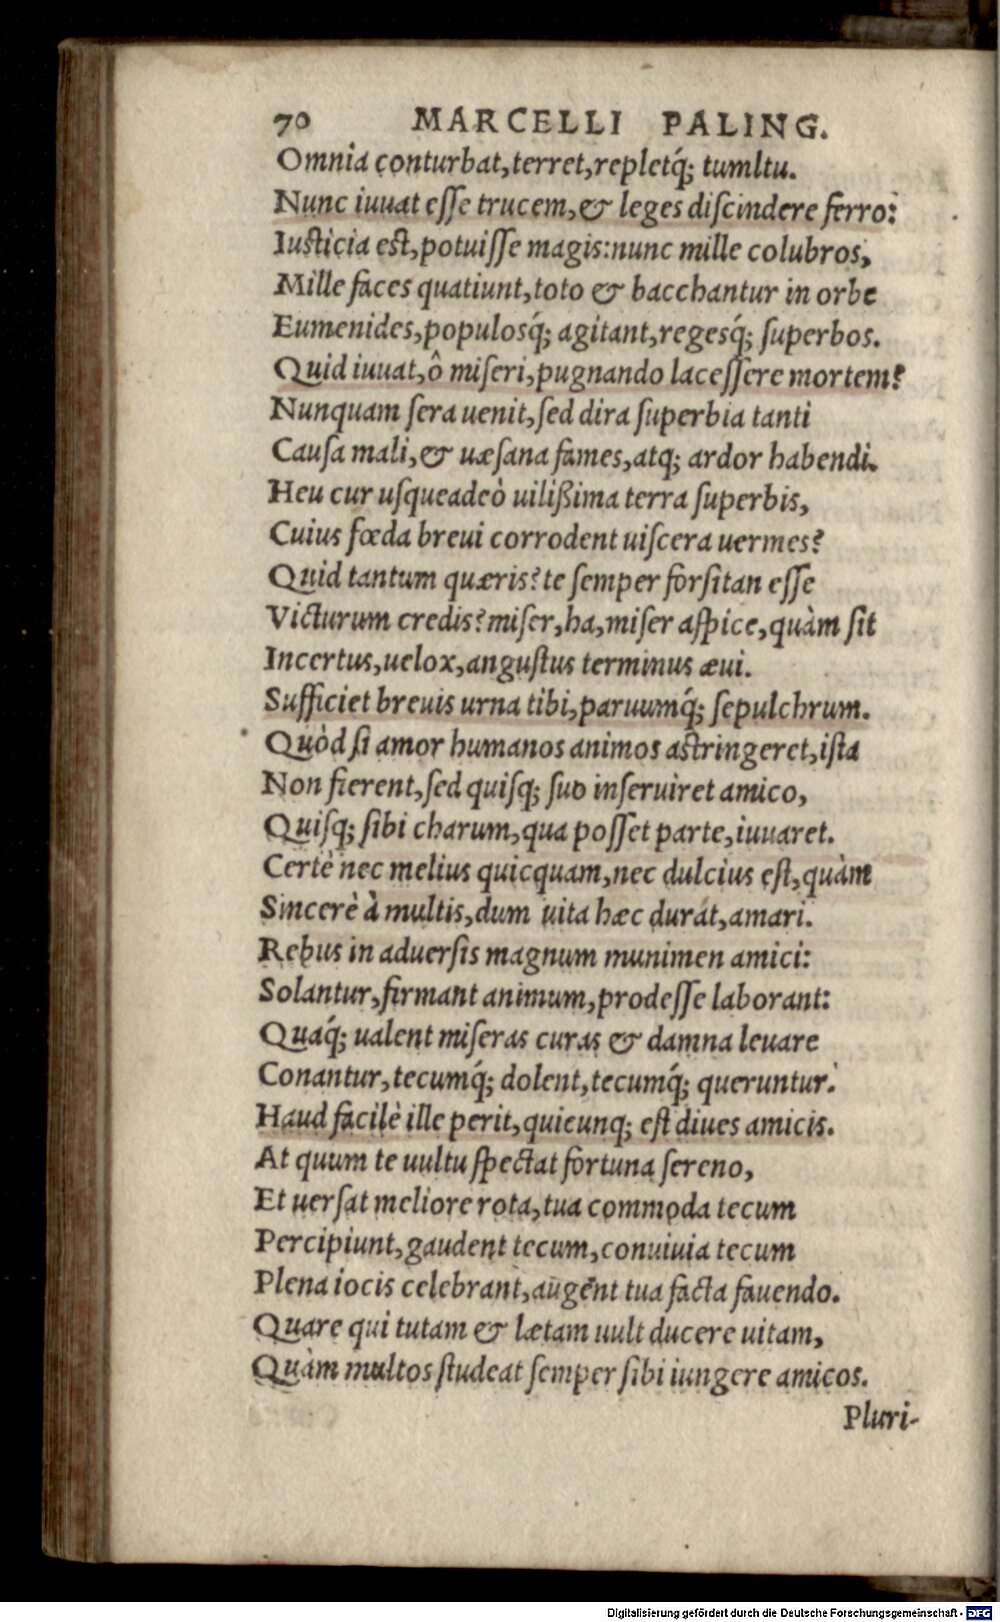 70 MARCELLI PALING.
Omnia conturbat, terret, repletq́; tumltu.
Nunc iuuat eſſe trucem, & leges diſcindere ferro:
Iuſticia eſt, potuiſſe magis: nunc mille colubros,
Mille faces quatiunt, toto & bacchantur in orbe
Eumenides, populosq́; agitant, regesq́; ſuperbos.
Quid iuuat, ô miſeri, pugnando laceſſere mortem?
Nunquam ſera uenit, ſed dira ſuperbia tanti
Cauſa mali, & uæſana fames, atq; ardor habendi.
Heu cur uſqueadeò uilißima terra ſuperbis,
Cuius fœda breui corrodent uiſcera uermes?
Quid tantum quæris? te ſemper forſitan eſſe
Victurum credis? miſer, ha, miſer aſpice, quàm ſit
Incertus, uelox, anguſtus terminus æui.
Sufficiet breuis urna tibi, paruumq́; ſepulchrum.
Quòd ſi amor humanos animos aſtringeret, iſta
Non fierent, ſed quiſq; ſuo inſeruiret amico,
Quiſq; ſibi charum, qua poſſet parte, iuuaret.
Certè nec melius quicquam, nec dulcius eſt, quàm
Sincerè à multis, dum uita hæc durat, amari.
Rebus in aduerſis magnum munimen amici:
Solantur, firmant animum, prodeſſe laborant:
Quaq́; ualent miſeras curas & damna leuare
Conantur, tecumq́; dolent, tecumq́; queruntur.
Haud facilè ille perit, quicunq; eſt diues amicis.
At quum te uultu ſpectat fortuna ſereno,
Et uerſat meliore rota, tua commoda tecum
Percipiunt, gaudent tecum, conuiuia tecum
Plena iocis celebrant, augent tua facta fauendo.
Quare qui tutam & lætam uult ducere uitam,
Quàm multos ſtudeat ſemper ſibi iungere amicos.
Pluri-
Digitalisierung gefördert durch die Deutsche Forschungsgemeinschaft - DFG